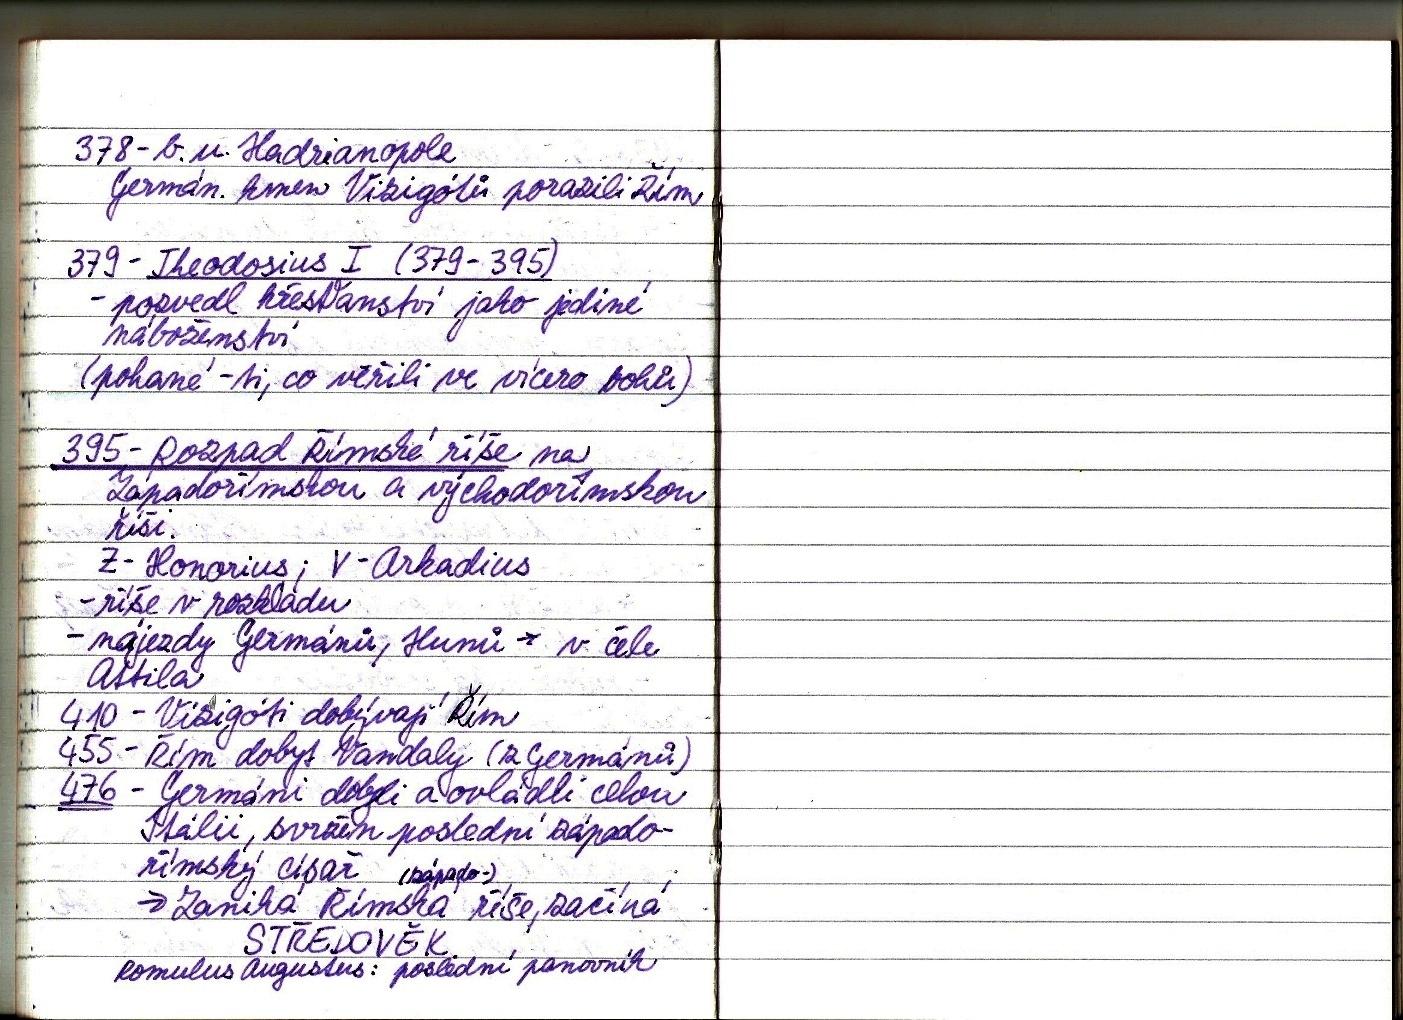 378 - b. u. Hadrianopole
Germán. kmen Vizigótů porazili Řím
379 - Theodosius I (379-395)
- pozvedl křesťanství jako jediné
náboženství
(pohané - ti, co věřili ve vícero bohů)
395 - Rozpad Římské říše na
Západořímskou a východořímskou
říši.
Z - Honorius; V - Arkadius
- říše v rozkladu
- nájezdy Germánů, Hunů → v čele
Attila
410 - Vizigóti dobývají Řím
455 - Řím dobyt Vandaly (z Germánů)
476 - Germáni dobyli a ovládli celou
Itálii, svržen poslední západo-
římský císař (západo-)
⇒ Zaniká Římská říše, začíná
STŘEDOVĚK
Romulus Augustus: poslední panovník